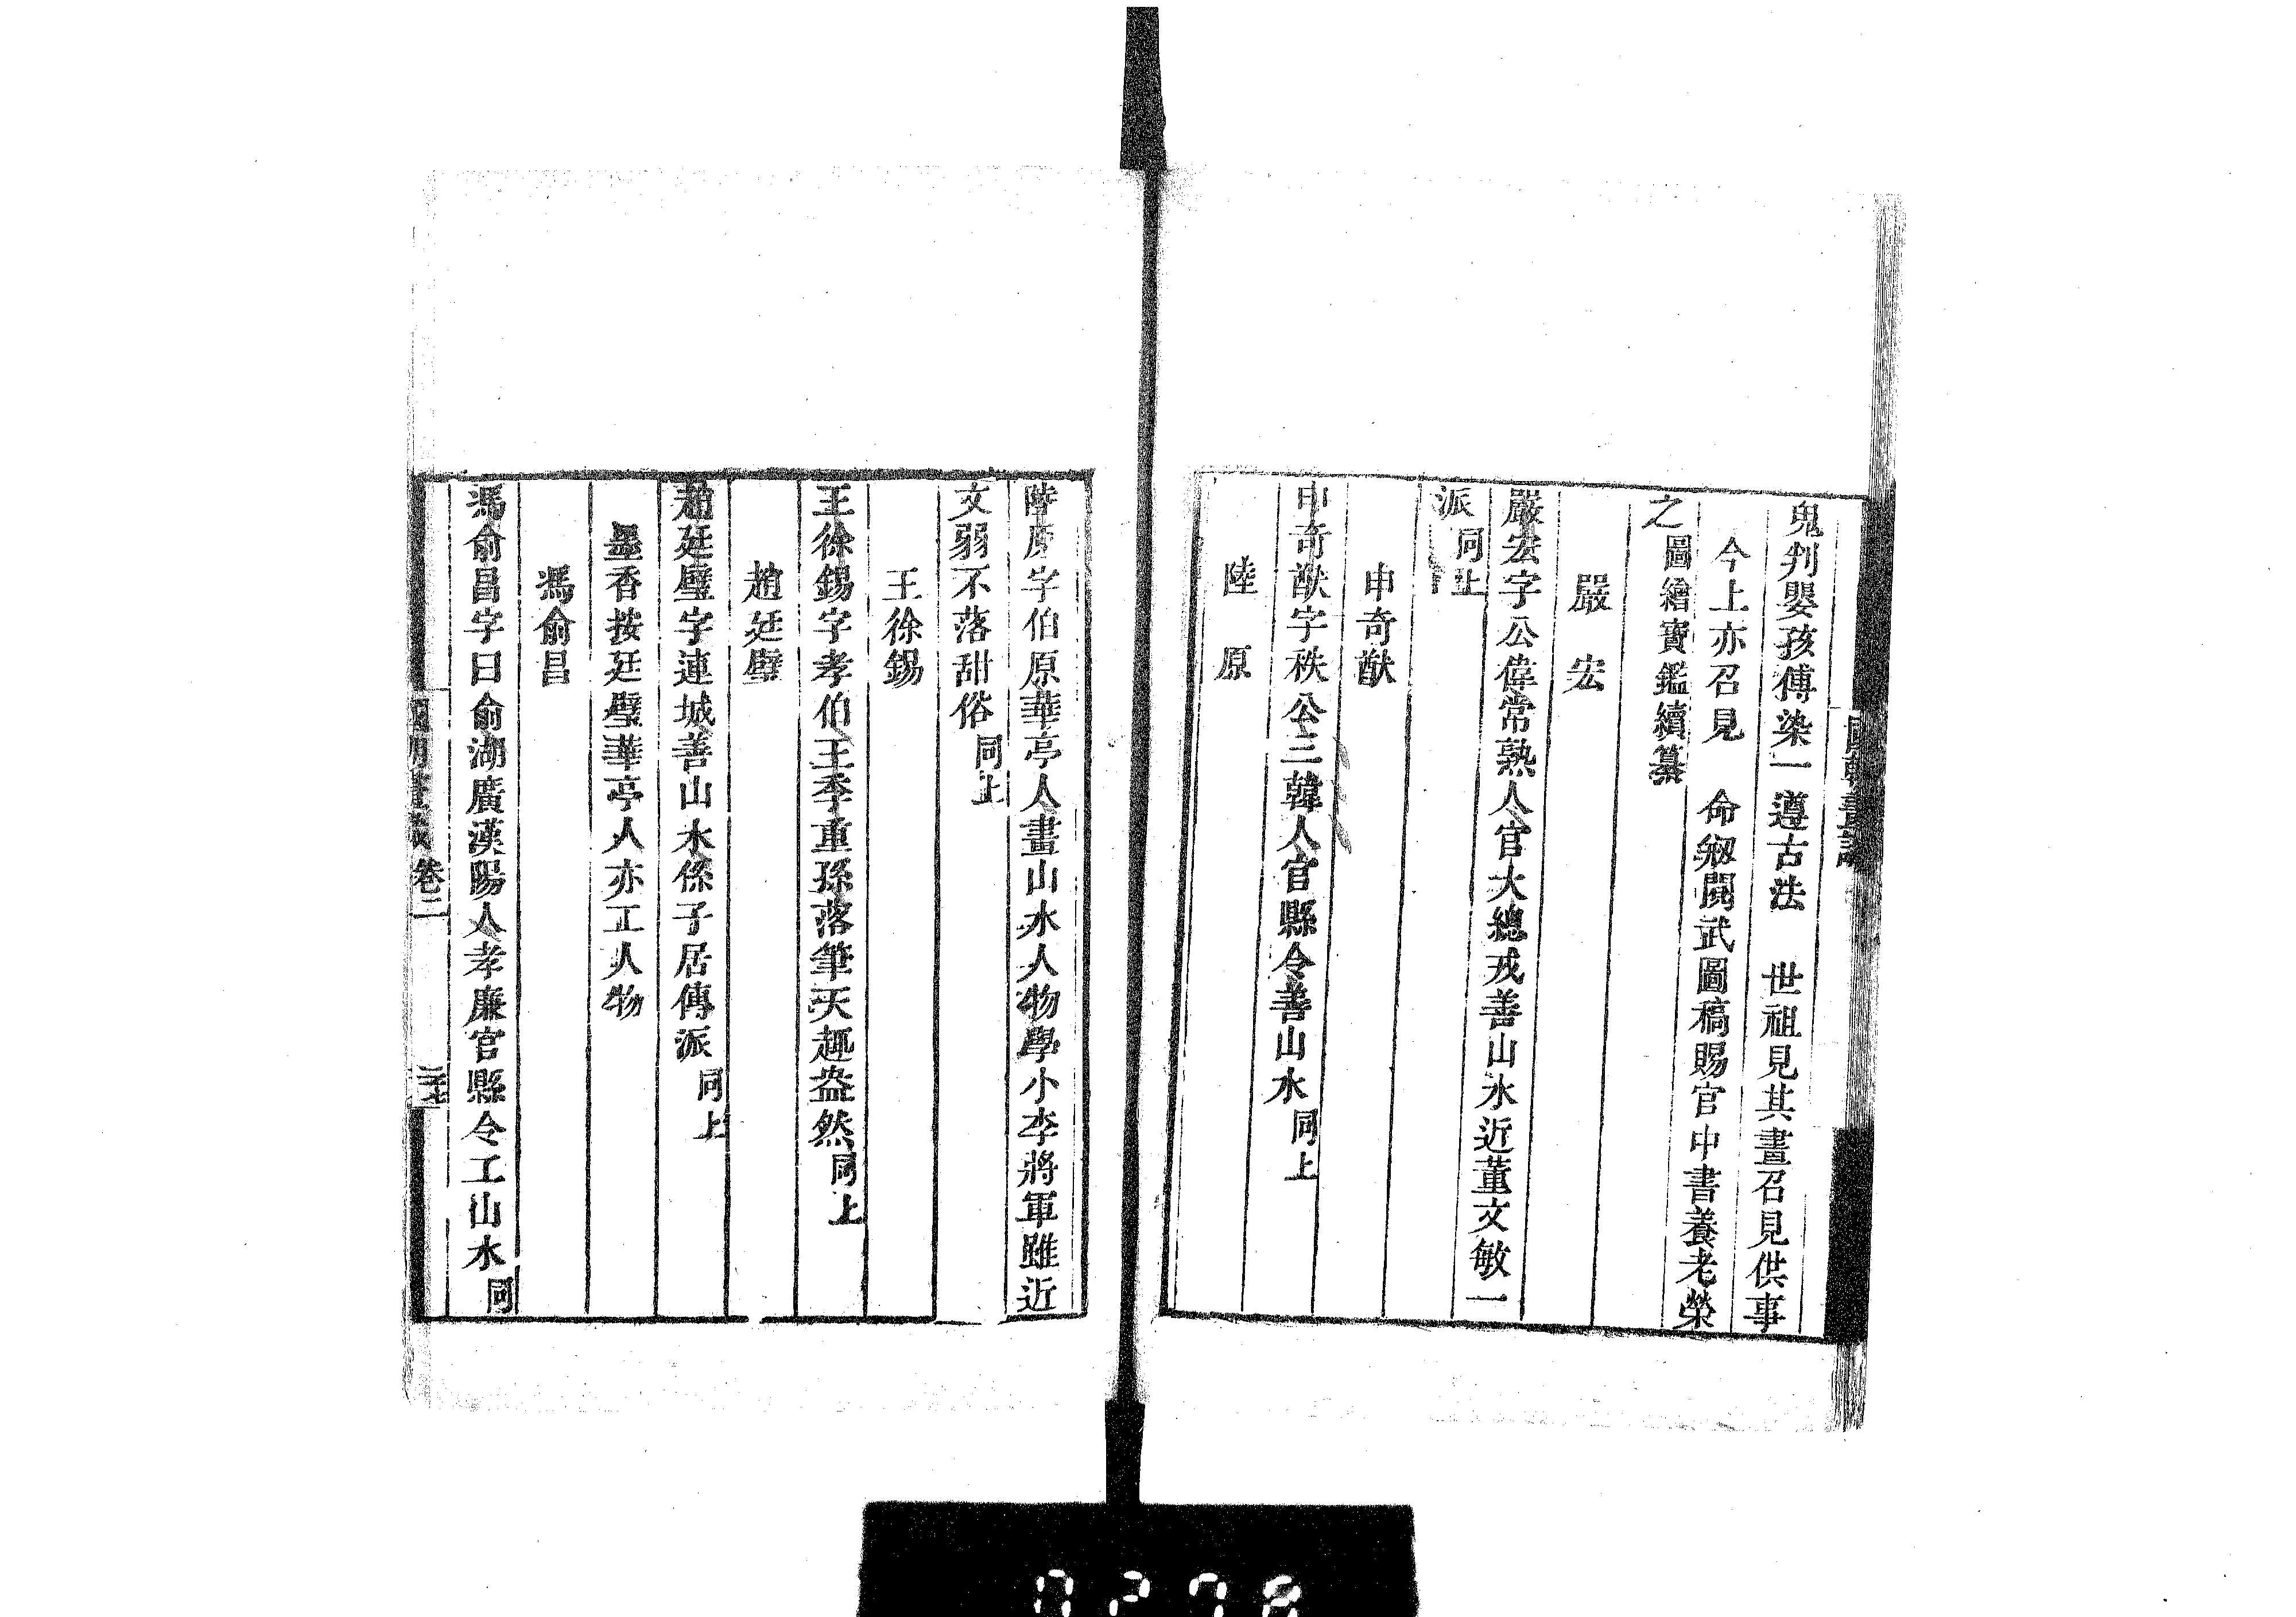 鬼判嬰孩傅染一遵古法 世祖見其畫召見供事
今上亦召見 命剏閱武圖稿賜官中書養老榮
之圖繪寶鑑續纂
嚴宏
嚴宏字公偉常熟人官大總戎善山水近董文敏一
派同上
申奇猷
申奇猷字秩公三韓人官縣令善山水同上
陸原
陸原字伯原華亭人畫山水人物學小李將軍雖近
文弱不落甜俗同上
王徐錫
王徐錫字孝伯王季重孫落筆天趣盎然同上
趙廷璧
趙廷璧字連城善山水係子居傳派同上
墨香按廷璧華亭人亦工人物
馮俞昌
馮俞昌字曰俞湖廣漢陽人孝廉官縣令工山水同
卷二
0278